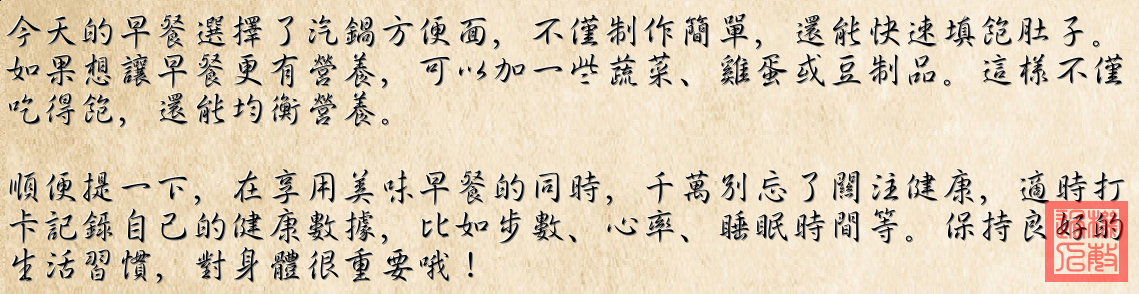 今天的早餐選擇了汽鍋方便面，不僅制作簡單，還能快速填飽肚子。
如果想讓早餐更有營養，可以加一些蔬菜、雞蛋或豆制品。這樣不僅
吃得飽，還能均衡營養。
順便提一下，在享用美味早餐的同時，千萬別忘了關注健康，適時打
卡記錄自己的健康數據，比如步數、心率、睡眠時間等。保持良好的
生活習慣，對身體很重要哦！